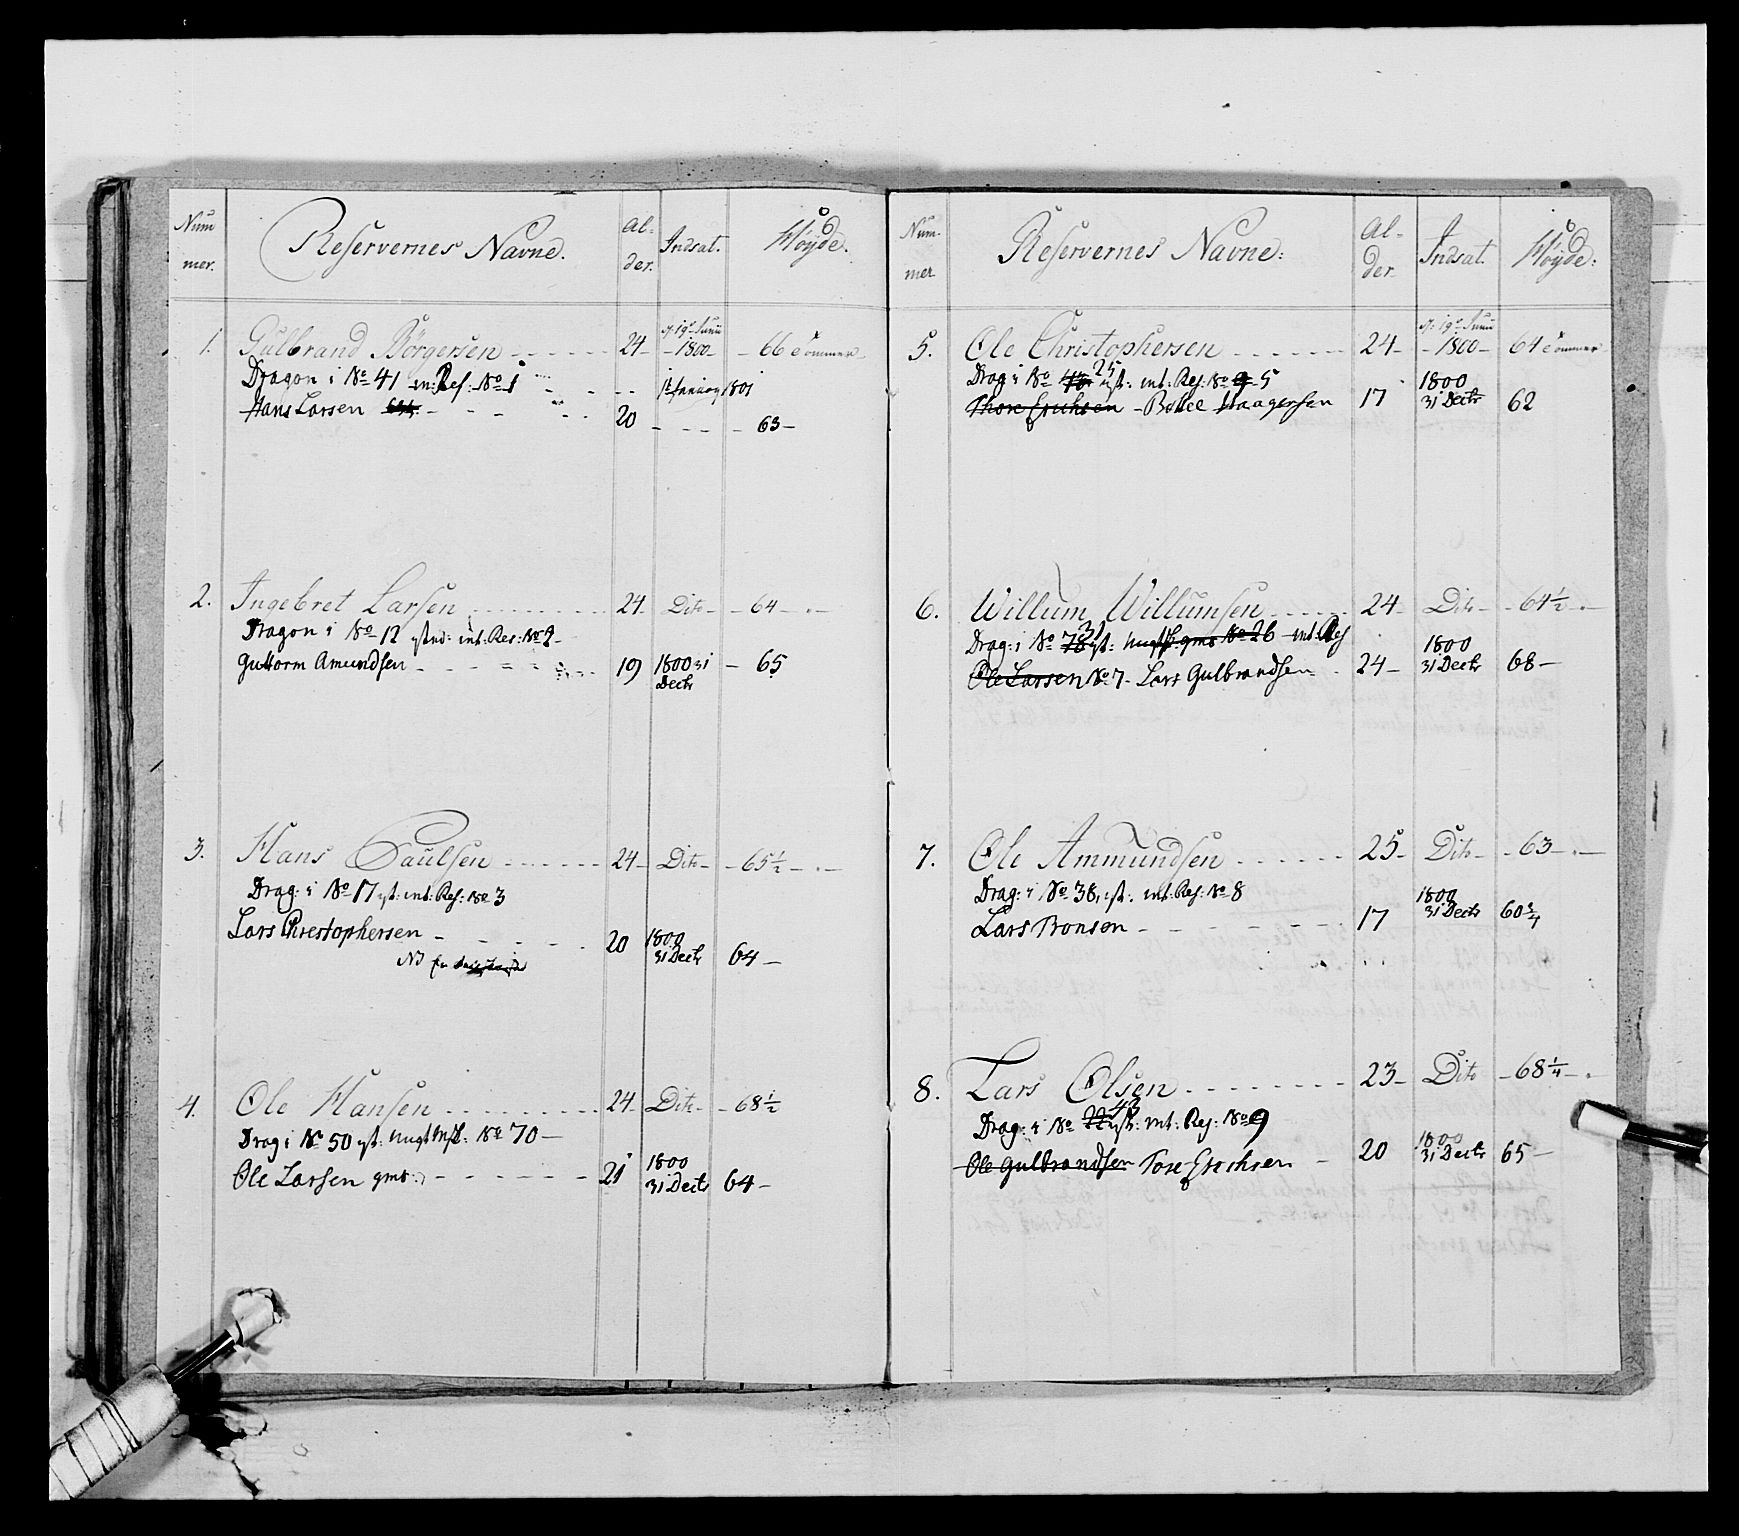 Num
mer.
Reservernes Navne.
Al-
der.
Indsat.
Høyde.
1. Gulbrand Børgersen 24 d: 19de Junii 1800 66 Tommer
Dragon i No 41 int: Res: No 1 1te Januarij 1801
Hans Larsen 20 63
2. Ingebret Larsen 24 Dito 64
Dragon i No 12 int: Res: No 2
Guttorm Amundsen 19 1800 31 Decbr 65
3. Hans Paulsen 24 Dito 65 1/2
Drag: i No 17 ist: int: Res: No 3
Lars Chrestophersen 20 1800 31 Decbr 64
NB
4. Ole Hansen 24 Dito 68 1/2
Drag i No 50 ist: No 70
Ole Larsen 21 1800 31 Decbr 64
Num.
mer
Reservernes Navne:
Al-
der.
Indsat.
Høyde:
5. Ole Christophersen 24 d: 19de Junii 1800 64 Tommer
Drag i No 25 ist: int: Res: No 9 5
Thore Erichsen Bottel Haagersen 17 1800 31 Decbr 62
6. Willum Willumsen 24 Dito 64 1/2
Drag: i No 78 31 ist: No 26 int: Res
Ole Larsen No 7 Lars Gulbrandsen 24 1800 31 Decbr 68
7. Ole Ammundsen 25 Dito 63
Drag: i No 38, ist: int: Res: No 8
Lars Tronsen 17 1800 31 Decbr 60 3/4
8. Lars Olsen 23 Dito 68 1/4
Drag: i No 22 43 ist: int: Res: No 9
Ole Gulbrandsen Tore Erichsen 20 1800 31 Decbr 65